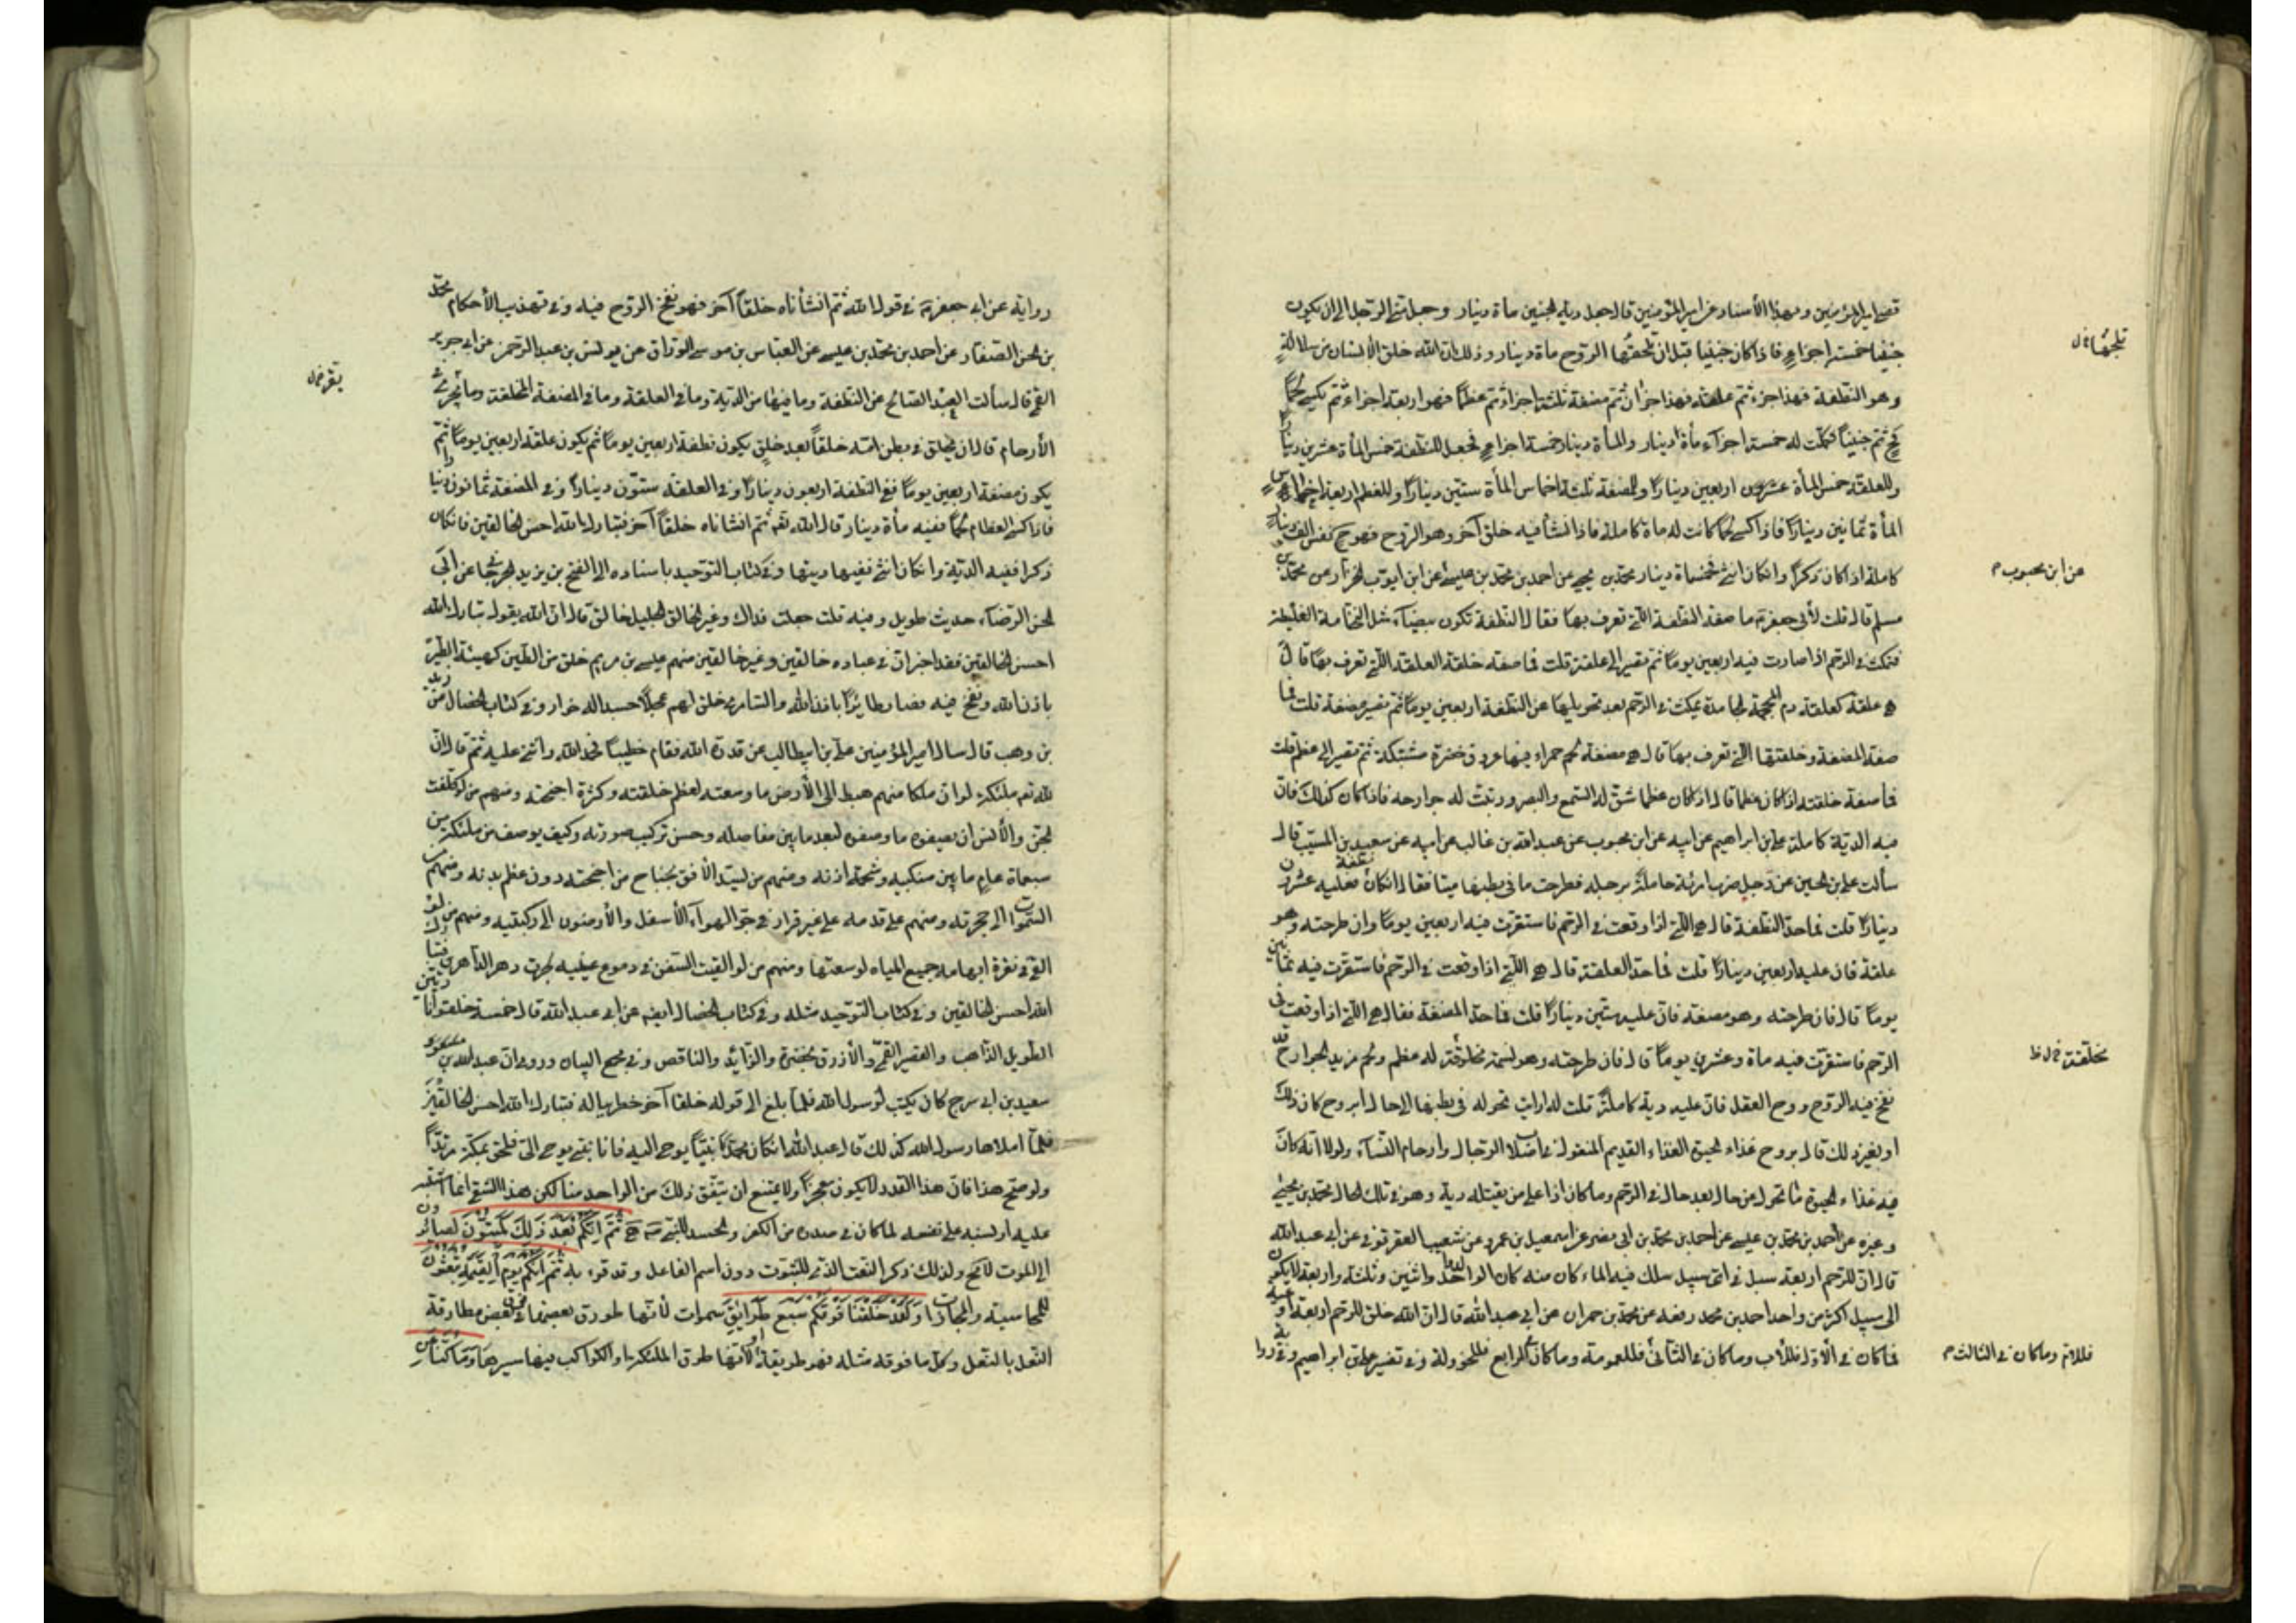 قضى امير المؤمنين وبهذا الأسناد عن امير المؤمنين قال جعل دية الجنين مأة دينار وجعل منى الرجل الى ان يكون
جنينا خمسة اجزاء فاذا كان جنينا قبل ان تلجها الروح مأة دينار وذلك ان الله خلق الإنسان من سلالة
وهو النطفة فهذا جزء ثم علقة فهذا جزأن ثم مضغة ثلثة اجزاء ثم عظمًا فهو اربعة اجزاء ثم يكسى لحمًا
ثم جنينًا فكملت له خمسة اجزآء مأة دينار والمأة دينار خمسة اجزاء فجعل للنطفة خمس المأة عشرين دينارًا
وللعلقة خمس المأة اربعين دينارًا وللمضغة ثلثة اخماس المأة ستين دينارًا وللعظم اربعة اخماس
المأة ثمانين دينارًا فاذا كسى لحمًا كانت له مأة كاملة فاذا انشأ فيه خلق آخر وهو الروح فهو ح نفس الف دينار
كاملة اذا كان ذكرًا وان كان انثى فخمسمأة دينار محمّد بن يحيى عن احمد بن محمّد بن عيسى عن ابن ايوب الخزاز عن محمّد بن
عن ابن محبوب م
مسلم قال قلت لأبى جعفر ما صفة النطفة الّتى تعرف بها فقال النطفة تكون بيضآء مثل النخامة الغليظة
فتمكث فى الرحم اذا صارت فيه اربعين يومًا ثم تصير الى علقة قلت فما صفة خلقة العلقة الّتى تعرف بها قال
هى علقة كعلقة دم المحجمة الجامدة تمكث فى الرحم بعد تحويلها عن النطفة اربعين يومًا ثم تصير مضغة قلت فما
صفة المضغة وخلقتها الّتى تعرف بها قال هى مضغة لحم حمراء فيها عروق خضرة مشتبكة ثم تصير الى عظم قلت
فما صفة خلقته اذا كان عظما قال اذا كان عظما شق له السمع والبصر ورتبت له جوارحه فاذا كان كذلك فان
فيه الدية كاملة على بن ابراهيم عن ابيه عن ابن محبوب عن عبد الله بن غالب عن ابيه عن سعيد بن المسيّب قال
سألت على بن الحسين عن رجل ضرب امرئة حاملة برجله فطرحت ما فى بطنها ميتا فقال ان كان نطفة فعليه عشرون
دينارًا قلت فما حد النطفة قال هى الّتى اذا وقعت فى الرحم فاستقرت فيه اربعين يومًا وان طرحته وهو
علقة فان عليه اربعين دينارًا قلت فما حد العلقة قال هى الّتى اذا وقعت فى الرحم فاستقرت فيه ثمانين
يومًا قال فان طرحته وهو مضغة فان عليه ستين دينارًا قلت فما حد المضغة فقال هى الّتى اذا وقعت فى
الرحم فاستقرت فيه مأة وعشرين يومًا قال فان طرحته وهو نسمة مخلوقة له عظم ولحم مزيد الجوارح قد
مخلقة
نفخ فيه الروح روح العقل فان عليه دية كاملة قلت له ارايت تحوله فى بطنها الى حال ابروح كان ذلك
او بغير ذلك قال بروح غذاء الحيوة القديم المنقول فى اصلاب الرجال وارحام النسآء ولولا انه كان
فيه غذاء الحيوة ما تحول من حال بعد حال فى الرحم وما كان اذا على من يقتله دية وهو فى تلك الحال محمّد بن يحيى
وغيره عن احمد بن محمّد بن عيسى عن احمد بن محمّد بن ابى نصر عن اسمعيل بن عمرو عن شعيب العقرقوفى عن ابى عبد الله
قال ان للرحم اربعة سبل فى اىّ سبيل سلك فيه الماء كان منه الولد واحد واثنين وثلثة واربعة لا يكون
الى سبيل اكثر من واحد احمد بن محمد رفعه عن محمّد بن حمران عن ابى عبد الله قال ان الله خلق للرحم اربعة اوعية
فما كان فى الأول فللأب وما كان فى الثانى فللعمومة وما كان الرابع فللخؤلة وفى تفسير على بن ابراهيم وفى
فللام وما كان فى الثالث م
رواية عن ابى جعفر فى قول الله ثم انشأناه خلقًا آخر فهو نفخ الروح فيه وفى تهذيب الأحكام محمّد
بن الحسن الصفار عن احمد بن محمّد بن عيسى عن العباس بن موسى الورّاق عن يونس بن عبد الرحمن عن ابى جرير
القمى قال سألت العبد الصالح عن النطفة وما فيها من الدية وما فى العلقة وما فى المضغة المخلقة وما يقر فى
الأرحام قال انه يخلق فى بطن امه خلقًا بعد خلق يكون نطفة اربعين يومًا ثم يكون علقة اربعين يومًا ثم
يكون مضغة اربعين يومًا ففى النطفة اربعون دينارًا وفى العلقة ستون دينارًا وفى المضغة ثمانون دينارا
فاذا كسى العظام لحمًا ففيه مأة دينار قال الله ثم انشاناه خلقًا آخر فتبارك الله احسن الخالقين فان كان
ذكرا ففيه الدية وان كان انثى ففيها ديتها وفى كتاب التوحيد باسناده الى الفتح بن يزيد الجرجانى عن ابى
الحسن الرضا حديث طويل وفيه قلت جعلت فداك وغير الخالق الجليل خالق قال ان الله يقول تبارك الله
احسن الخالقين فقد اخبر ان فى عباده خالقين وغير خالقين منهم عيسى بن مريم خلق من الطين كهيئة الطير
باذن الله ونفخ فيه فصار طائرًا باذن الله والسامرى خلق لهم عجلًا جسدا له خوار وفى كتاب الخصال عن زيد
بن وهب قال سال امير المؤمنين على بن ابيطالب عن قدرة الله فقام خطيبًا فحمد الله واثنى عليه ثم قال ان
لله ملئكة لو ان ملكا منهم هبط الى الأرض ما وسعته لعظم خلقته وكثرة اجنحته ومنهم من لو كلفت
الجن والأنس ان يصفوه ما وصفوه لبعد ما بين مفاصله وحسن تركيب صورته وكيف يوصف من ملئكته من
سبعمأة عام ما بين منكبيه وشحمة اذنه ومنهم من يسد الأفق بجناح من اجنحته دون عظم بدنه ومنهم من
السموات الى حجزته ومنهم على قدمه على غير قرار فى جو الهوآء الأسفل والأرضون الى ركبتيه ومنهم من لو
القى فى نقرة ابهامه جميع المياه لوسعتها ومنهم من لو القيت السفن فى دموع عينيه لجرت دهر الداهرين فتبارك
الله احسن الخالقين وفى كتاب التوحيد مثله وفى كتاب الخصال عن ابى عبد الله قال خمسة خلقوا ناريّين
الطويل الذاهب والقصير القمى والأزرق بخضرة والزائد والناقص وفى مجمع البيان وروى ان عبد الله بن
سعيد بن ابى سرح كان يكتب لرسول الله فلما بلغ الى قوله خلقا آخر خطر بباله فتبارك الله احسن الخالقين
فلما املاها رسول الله كذلك قال عبد الله ان كان محمّد نبيًا يوحى اليه فانا نبى يوحى الىّ فلحق بمكة مرتدًا
ولو صح هذا فان هذا القدر لا يكون معجزًا ولا يمتنع ان يتفق ذلك من الواحد منا لكن هذا الشقى انما اشتبه
عليه او شبه على نفسه لما كان فى صدره من الكفر والحسد للنبى ثُمَّ اِنَّكُمْ بَعْدَ ذَلِكَ لَمَيِّتُونَ لصائرون
الى الموت لا مح ولذلك ذكر النعت الذى للثبوت دون اسم الفاعل وقد قرء به ثُمَّ اِنَّكُمْ يَوْمَ الْقِيمَةِ تُبْعَثُونَ
للمحاسبة والمجازات وَلَقَدْ خَلَقْنَا فَوْقَكُمْ سَبْعَ طَرَائِقَ سموات لأنها طورق بعضها فوق بعض مطارقة
النعل بالنعل وكل ما فوقه مثله فهو طريقة او لأنها طرق الملئكة او الكواكب فيها سيرها وَمَا كُنَّا عَنِ